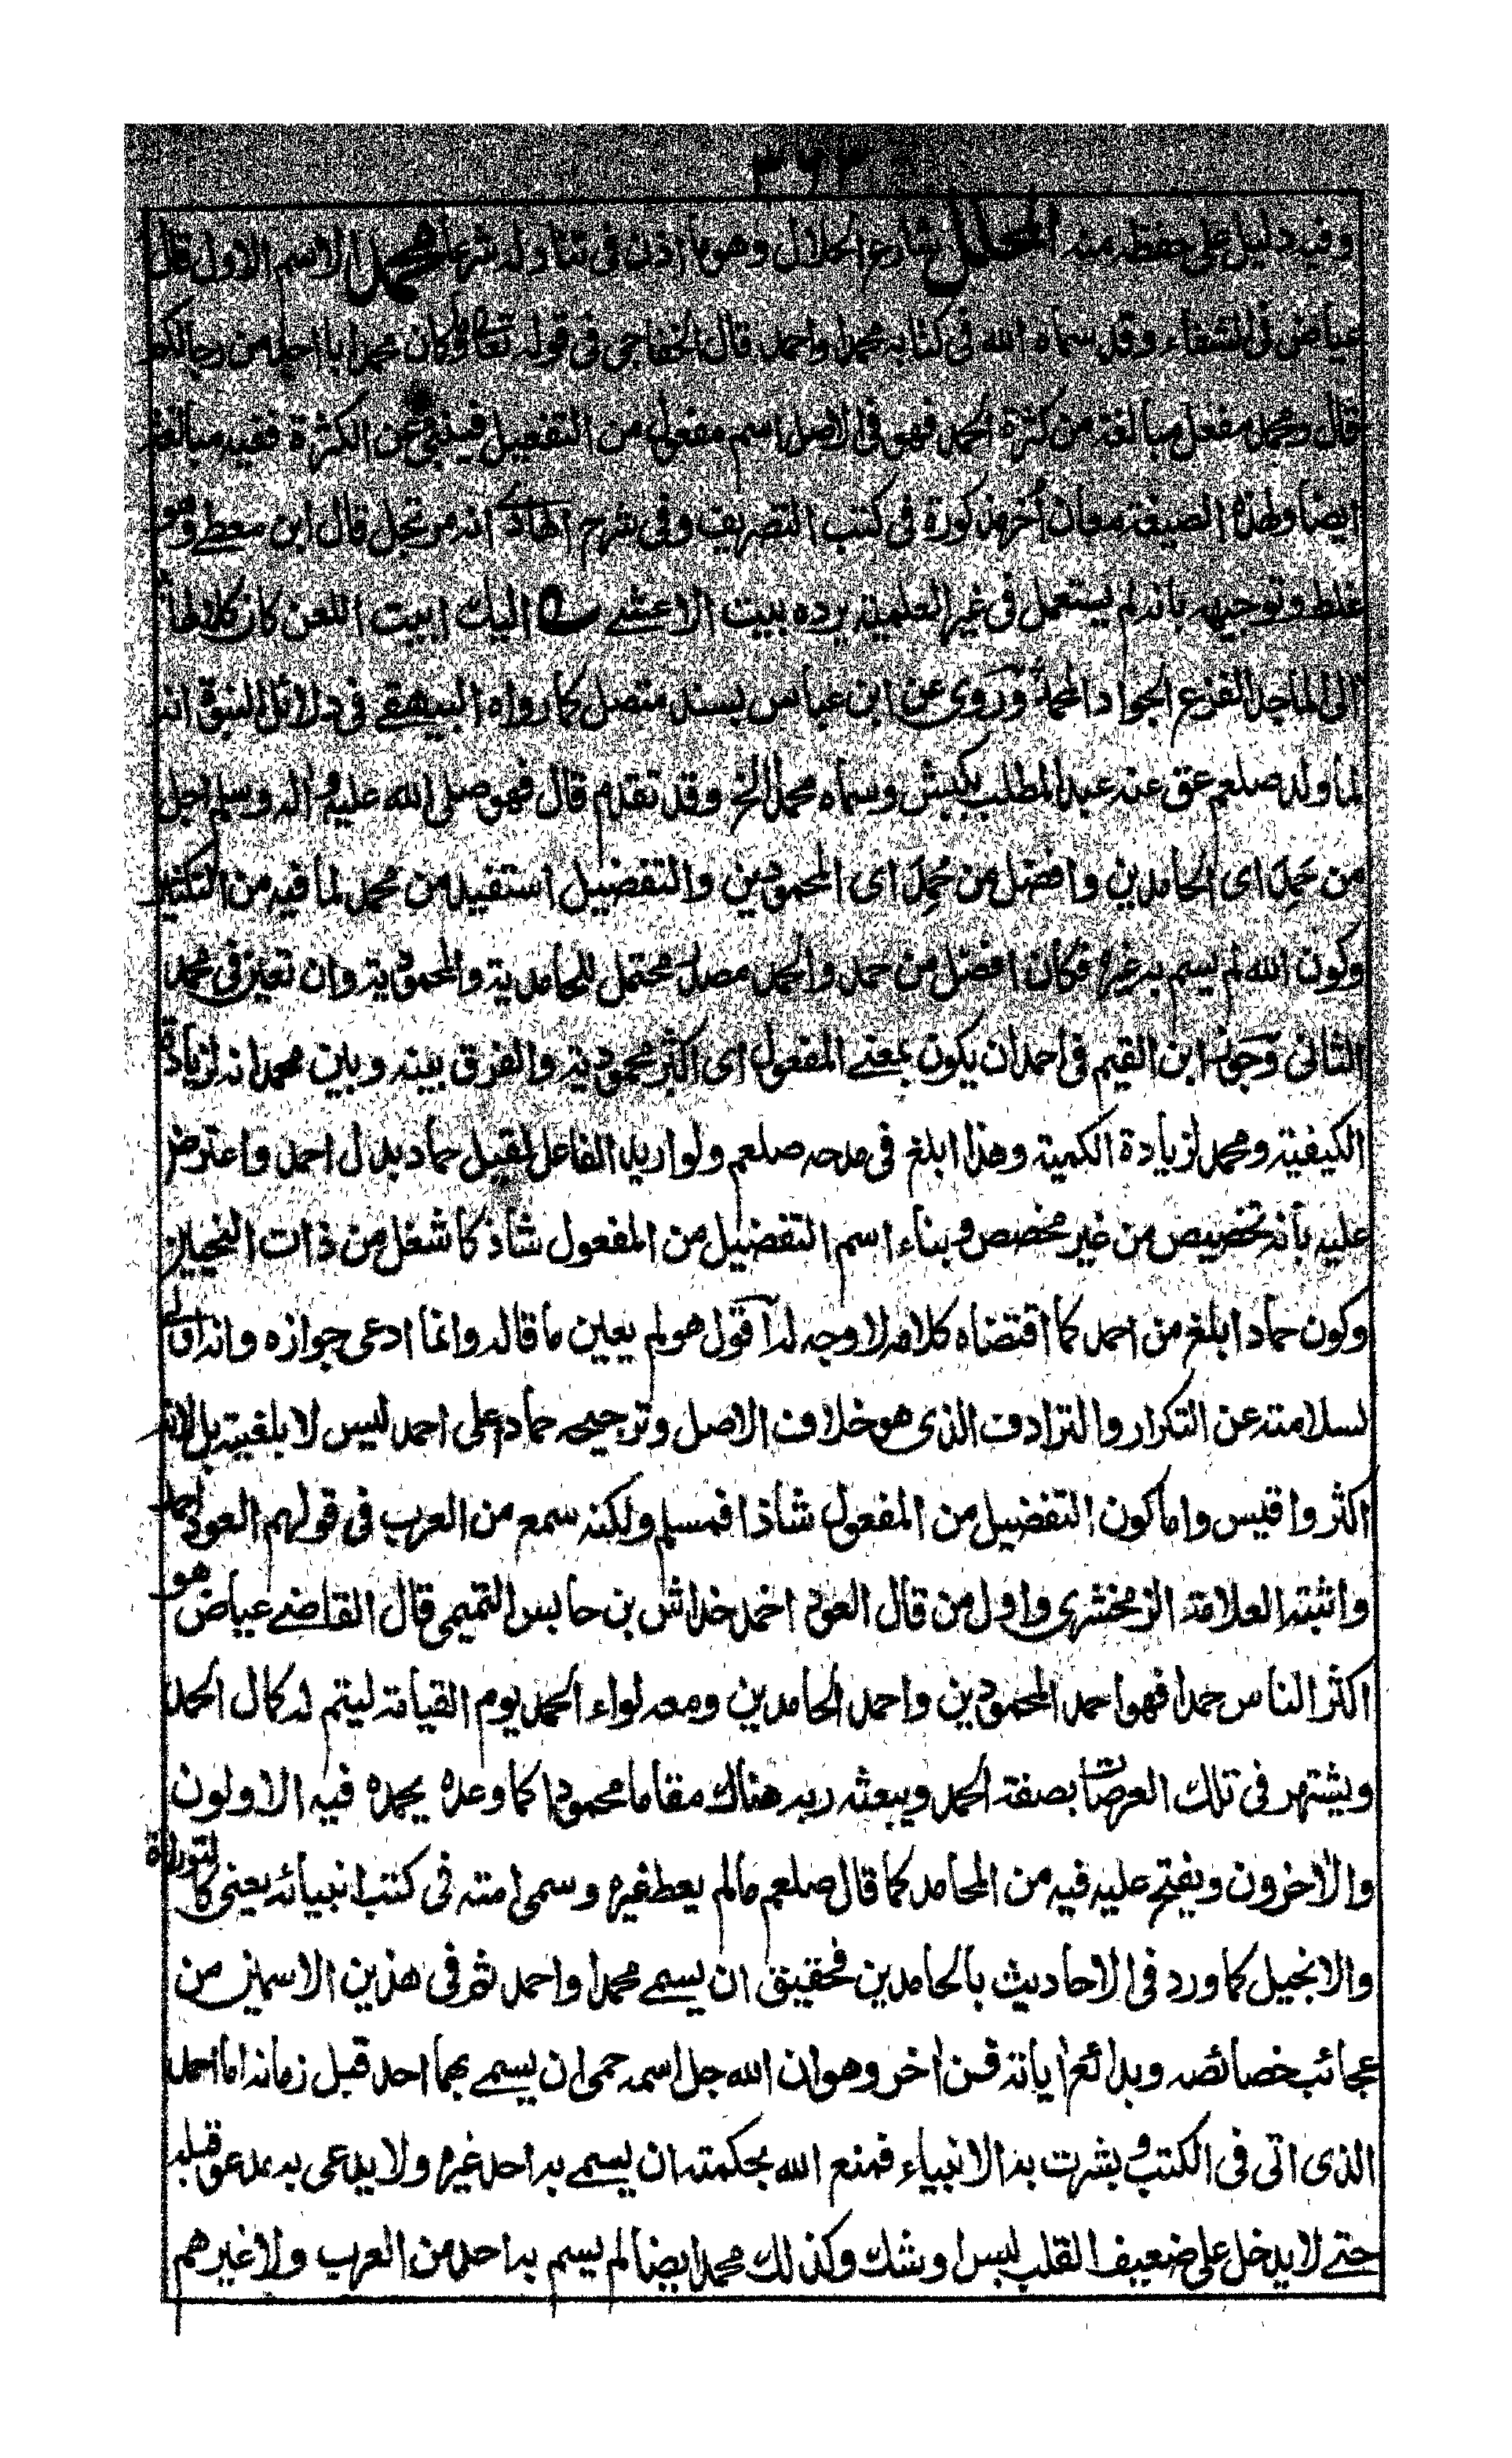 ٣٦٣
وفيه دليل على حفظه منه المحلل شارع الحلال وهو ما اذن فى تناوله شرعا محمد الاسم الاول قال
عياض فى الشفاء وقد سماه الله فى كتابه محمدا واحمد قال الخفاجى فى قوله تعا وماكان محمد ابا احد من رجالكم
قال ومحمد مفعل مبالغة من كثرة الحمد فهو فى الاصل اسم مفعول من التفعيل فينبئ عن الكثرة ففيه مبالغة
ايضا ولهذه الصيغة معان أخر مذكورة فى كتب التصريف وفى شرح الهادى انه مرتجل قال ابن معطى وهو
غلط وتوجيهه بانه لم يستعمل فى غير العلمية يرده بيت الاعشى اليك ابيت اللعن كان كلالها
الى الماجد الفرع الجواد المحمد وروى عن ابن عباس بسند متصل كما رواه البيهقى فى دلائل النبوة انه
لما ولد صلعم عق عنه عبد المطلب بكبش وسماه محمد الخ وقد تقدم قال فهو صلى الله عليه واله وسلم اجل
من حَمِدَ اى الحامدين وافضل من حُمِدَ اى المحمودين والتفضيل استفيد من محمد لما فيه من التكثير
وكون الله لم يسم به غيره فكان افضل من حمد والحمد مصدر محتمل للحامدية والمحمودية وان تعين فى محمد
الثانى وجوز ابن القيم فى احمد ان يكون بمعنى المفعول اى اكثر محمودية والفرق بينه وبين محمد انه لزيادة
الكيفية ومحمد لزيادة الكمية وهذا ابلغ فى مدحه صلعم ولو اريد الفاعل لقيل حماد بدل احمد واعترض
عليه بانه تخصيص من غير مخصص وبناء اسم التفضيل من المفعول شاذ كاشغل من ذات النحيين
وكون حماد ابلغ من احمد كما اقتضاه كلامه لا وجه له اقول هو لم يعين ما قاله وانما ادعى جوازه وانه اولى
لسلامته عن التكرار والترادف الذى هو خلاف الاصل وترجيحه حماد على احمد ليس لابلغيته بل لانه
اكثر واقيس واما كون التفضيل من المفعول شاذا فمسلم ولكنه سمع من العرب فى قولهم العود احمد
واثبته العلامة الزمخشرى واول من قال العود احمد خداش بن حابس التميمى قال القاضى عياض هو
اكثر الناس حمدا فهو احمد المحمودين واحمد الحامدين ومعه لواء الحمد يوم القيامة ليتم له كمال الحمد
ويشتهر فى تلك العرصات بصفة الحمد ويبعثه ربه هناك مقاما محمودا كما وعده يحمده فيه الاولون
والاخرون ويفتح عليه فيه من المحامد كما قال صلعم مالم يعط غيره وسمى امته فى كتب انبيائه يعنى كالتوراة
والانجيل كما ورد فى الاحاديث بالحامدين فحقيق ان يسمى محمدا واحمد ثم فى هذين الاسمين من
عجائب خصائصه وبدائع اياته فن اخر وهو ان الله جل اسمه حمى ان يسمى بهما احد قبل زمانه اما احمد
الذى اتى فى الكتب وبشرت به الانبياء فمنع الله بحكمته ان يسمى به احد غيره ولا يدعى به مدعو قبله
حتى لا يدخل على ضعيف القلب لبس او شك وكذلك محمد ايضا لم يسم به احد من العرب ولا غيرهم